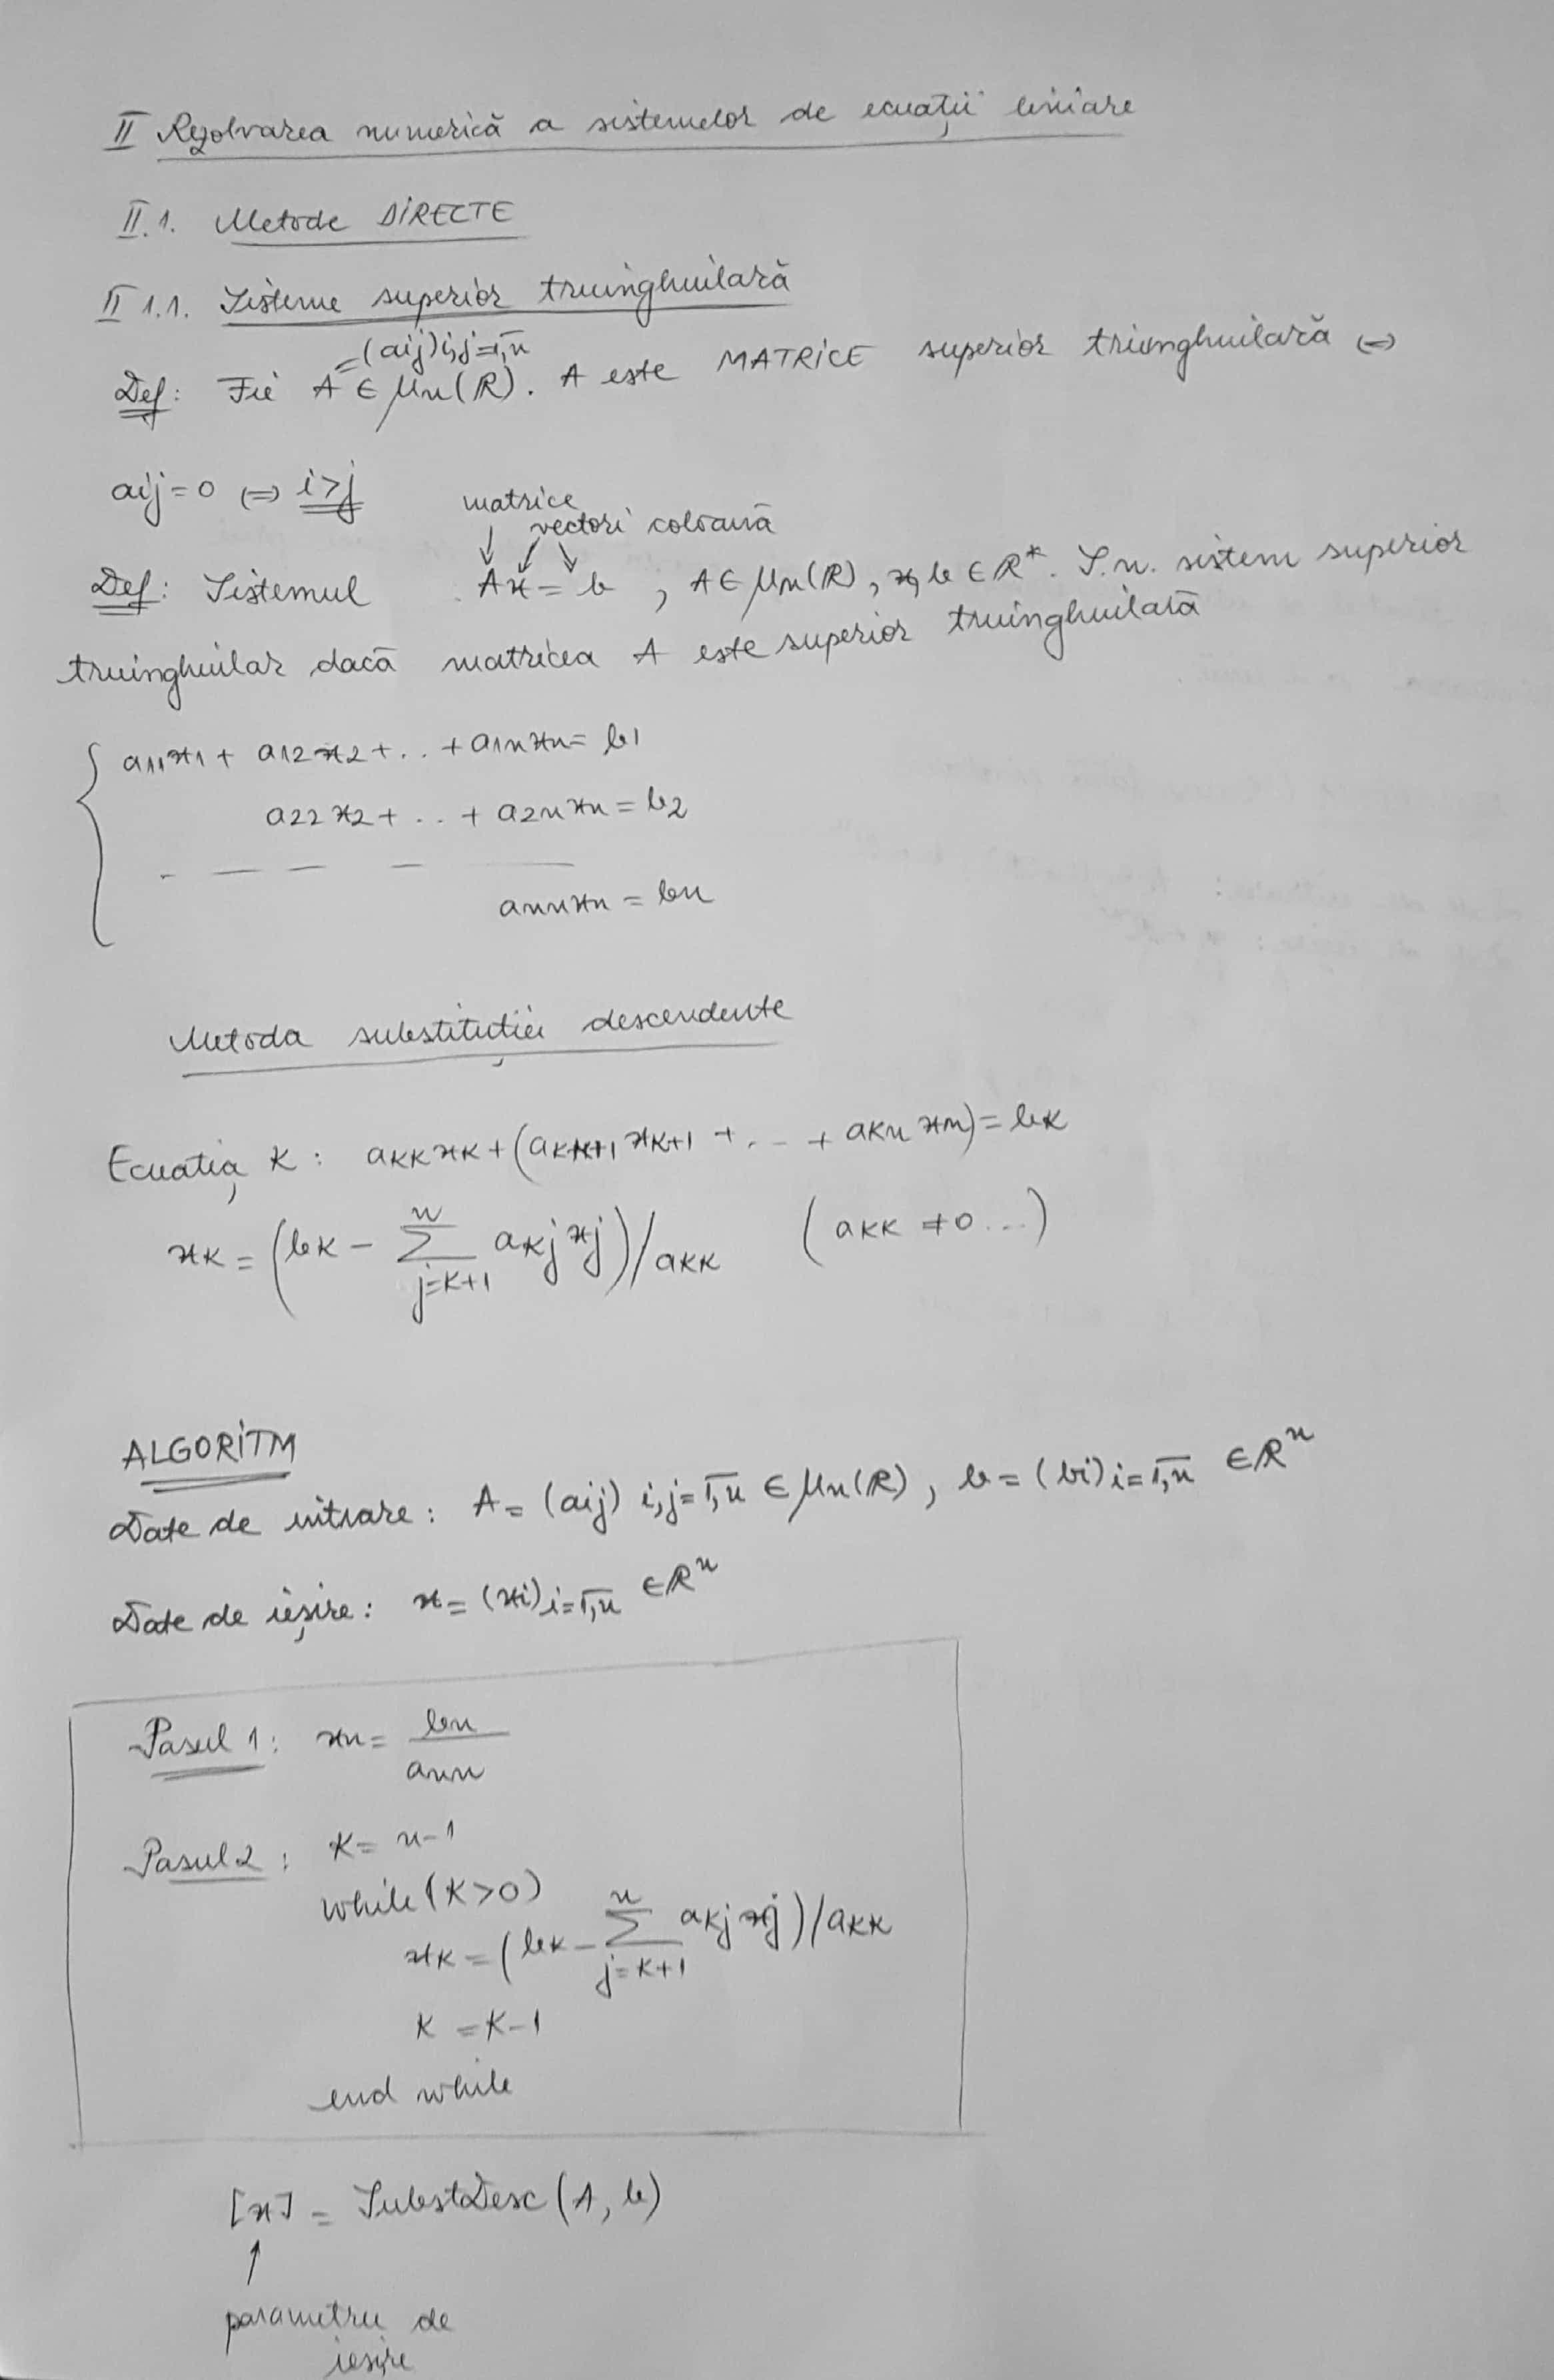 II Rezolvarea numerică a sistemelor de ecuații liniare
II.1. Metode DIRECTE
II 1.1. Sisteme superior triunghiulară
=(aij)i,j=1,n̅
Def: Fie A ∈ Mn(R). A este MATRICE superior triunghiulară (=)
aij=0 (=) i>j
matrice
vectori coloană
Def: Sistemul Ax=b , A∈Mn(R), x,b ∈R*. S.n. sistem superior
triunghiular dacă matricea A este superior triunghiulară
a11x1 + a12x2+..+a1nxn= b1
a22x2+..+ a2nxn=b2
- — — — ——
annxn = bn
Metoda substituției descendente
Ecuația K: aKKxK+(aKK+1xK+1 +...+ aKnxn)=bK
xK = (bK - n∑j=K+1 aKjxj)/aKK (aKK ≠0...)
ALGORITM
Date de intrare: A= (aij) i,j=1,n̅ ∈Mn(R), b=(bi)i=1,n̅ ∈Rⁿ
Date de ieșire: x=(xi)i=1,n̅ ∈Rⁿ
Pasul 1: xn= bn/ann
Pasul 2: K= n-1
while(K>0)
xK=(bK-n∑j=K+1 aKjxj)/aKK
K =K-1
end while
[x] = SubstDesc(A,b)
↑
parametru de
ieșire